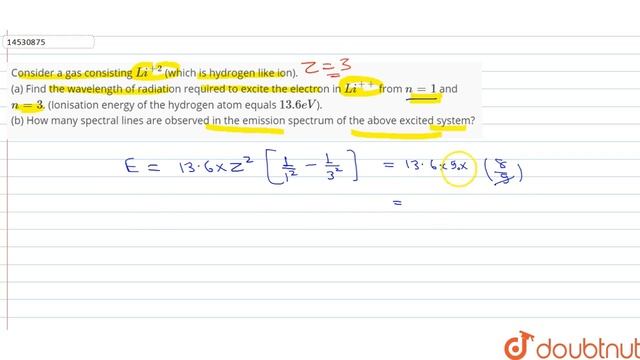 14530875
Consider a gas consisting Li⁺² (which is hydrogen like ion). Z = 3
(a) Find the wavelength of radiation required to excite the electron in Li⁺⁺ from n = 1 and
n = 3. (Ionisation energy of the hydrogen atom equals 13.6eV).
(b) How many spectral lines are observed in the emission spectrum of the above excited system?
E = 13.6 x Z² [1/1² - 1/3²] = 13.6 x 9 x (8/9)
=
doubtnut